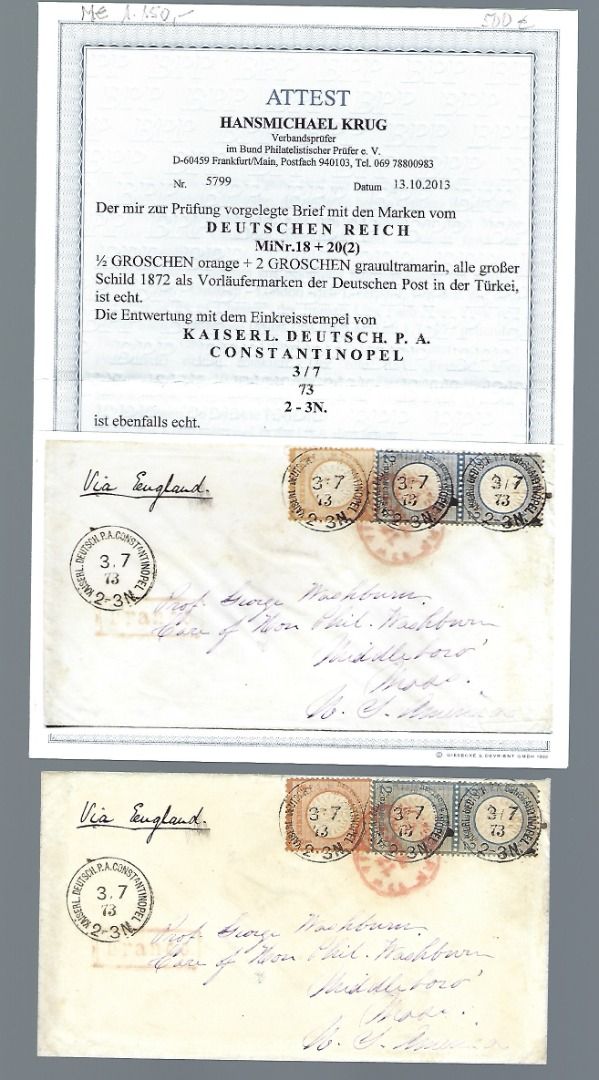 Mé 1.150,-
500 €
ATTEST
HANSMICHAEL KRUG
Verbandsprüfer
im Bund Philatelistischer Prüfer e. V.
D-60459 Frankfurt/Main, Postfach 940103, Tel. 069 78800983
Nr. 5799 Datum 13.10.2013
Der mir zur Prüfung vorgelegte Brief mit den Marken vom
DEUTSCHEN REICH
MiNr.18 + 20(2)
½ GROSCHEN orange + 2 GROSCHEN grauultramarin, alle großer
Schild 1872 als Vorläufermarken der Deutschen Post in der Türkei,
ist echt.
Die Entwertung mit dem Einkreisstempel von
KAISERL. DEUTSCH. P. A.
CONSTANTINOPEL
3 / 7
73
2 - 3N.
ist ebenfalls echt.
Via England.
3 7
73
2-3N.
3 7
73
2-3N.
3 7
73
2-3N.
KAISERL. DEUTSCH. P.A. CONSTANTINOPEL
3. 7
73
2-3N.
Franco
Prof. George Washburn
Care of Hon Phil. Washburn
Middleboro'
Mass.
U. S. America
© GIESECKE & DEVRIENT GMBH
Via England.
3 7
73
2-3N.
3 7
73
2-3N.
3 7
73
2-3N.
KAISERL. DEUTSCH. P.A. CONSTANTINOPEL
3. 7
73
2-3N.
Franco
Prof. George Washburn
Care of Hon Phil. Washburn
Middleboro'
Mass.
U. S. America